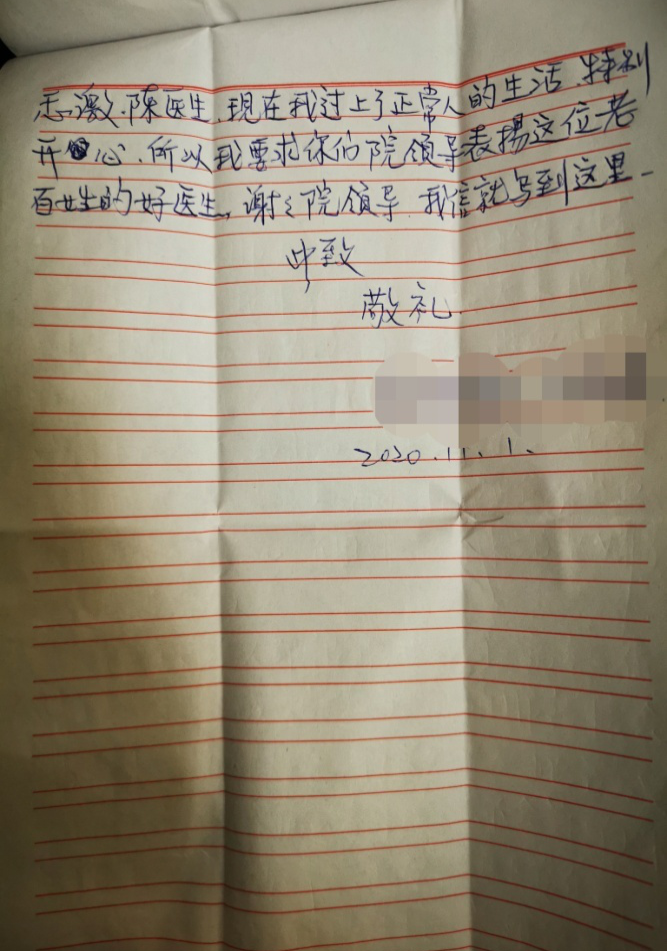 感激陈医生,现在我过上了正常人的生活,特别
开心,所以我要求你们院领导表揚这位老
百姓的好医生,谢々院领导,我信就写到这里。
此致
敬礼.
2020.11.1.